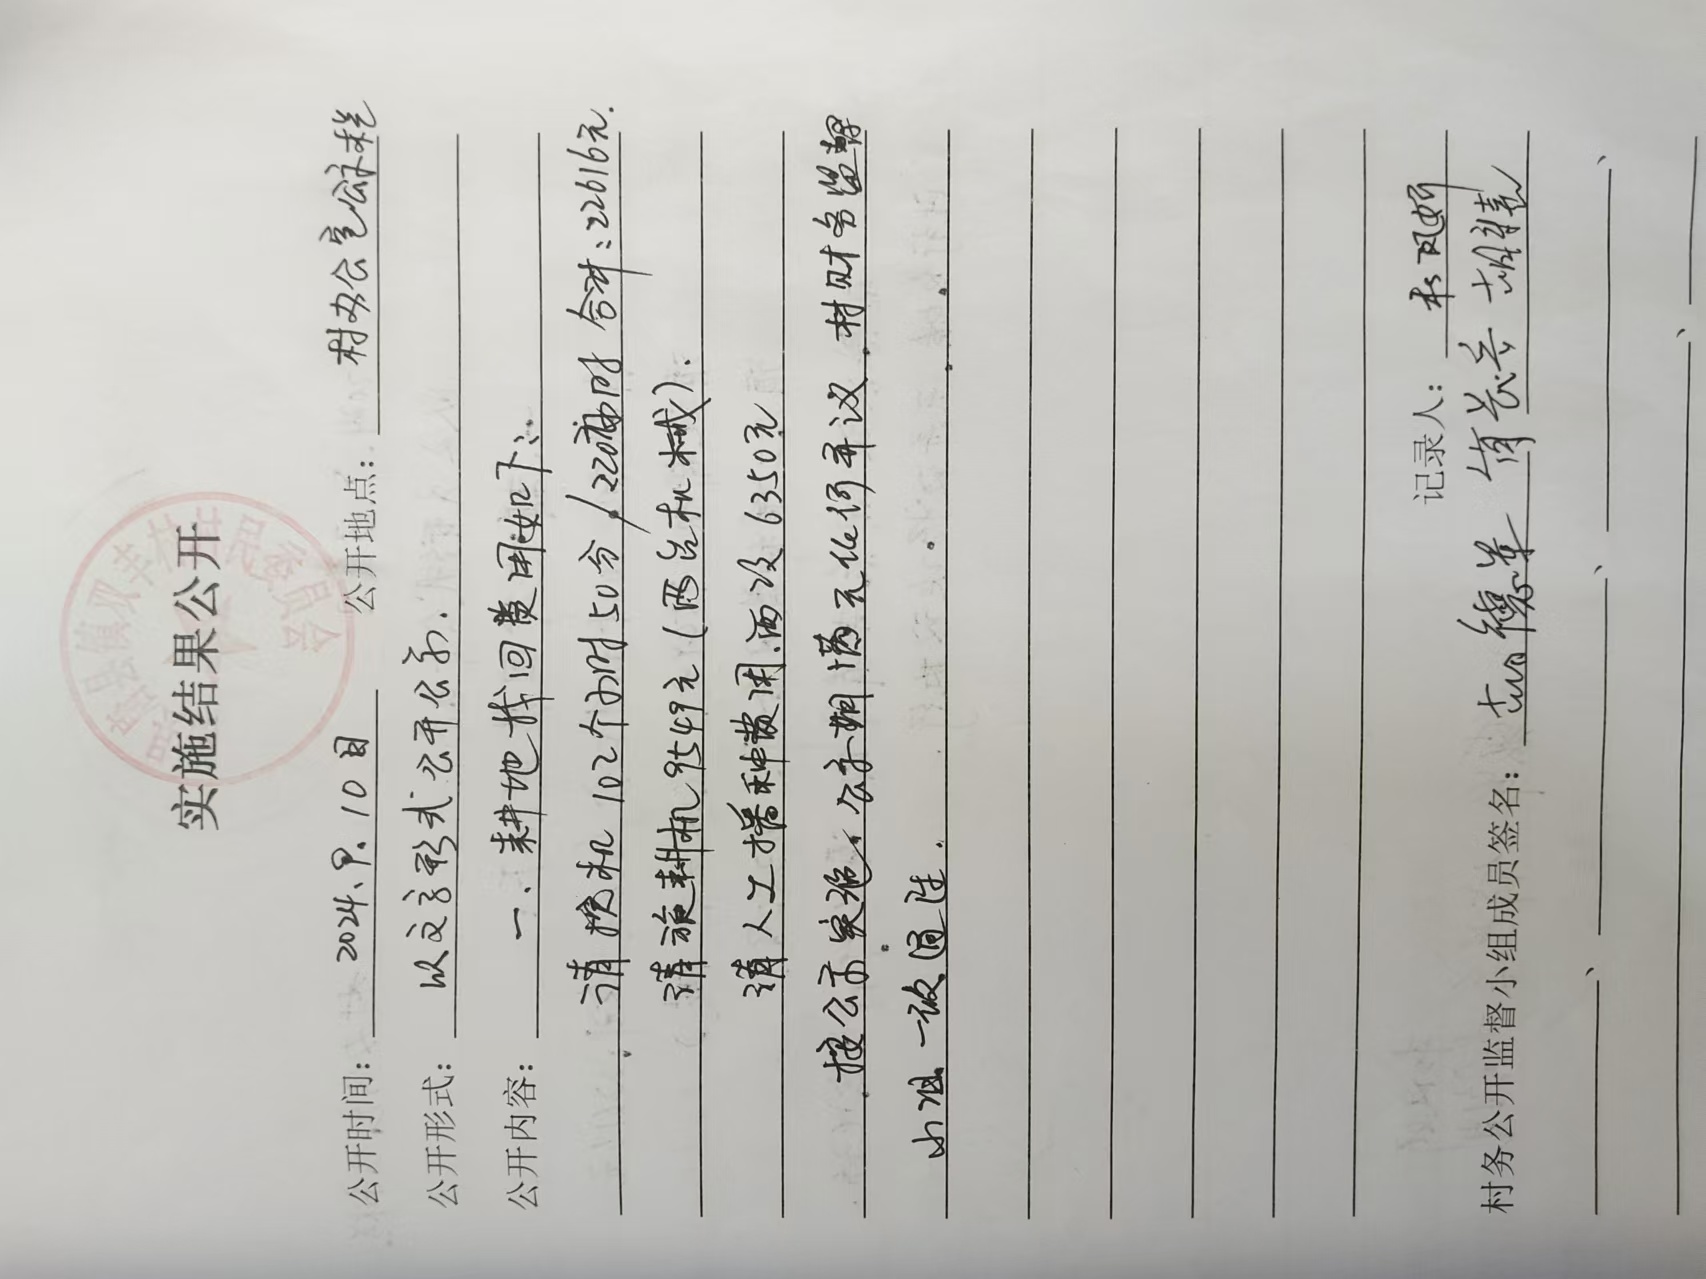 实施结果公开
公开时间：2024.9.10日 公开地点：村办公室公示栏
公开形式：以文字形式公开公示.
公开内容：一、耕地找回费用如下：
请挖机102个小时50分/220每小时 合计：22616元.
请旋耕机9549元（两台机械）.
请人工播种费用.两次6350元
按公示实施，公示期满无任何异议.村财务监督
小组一致通过.
记录人：
村务公开监督小组成员签名：